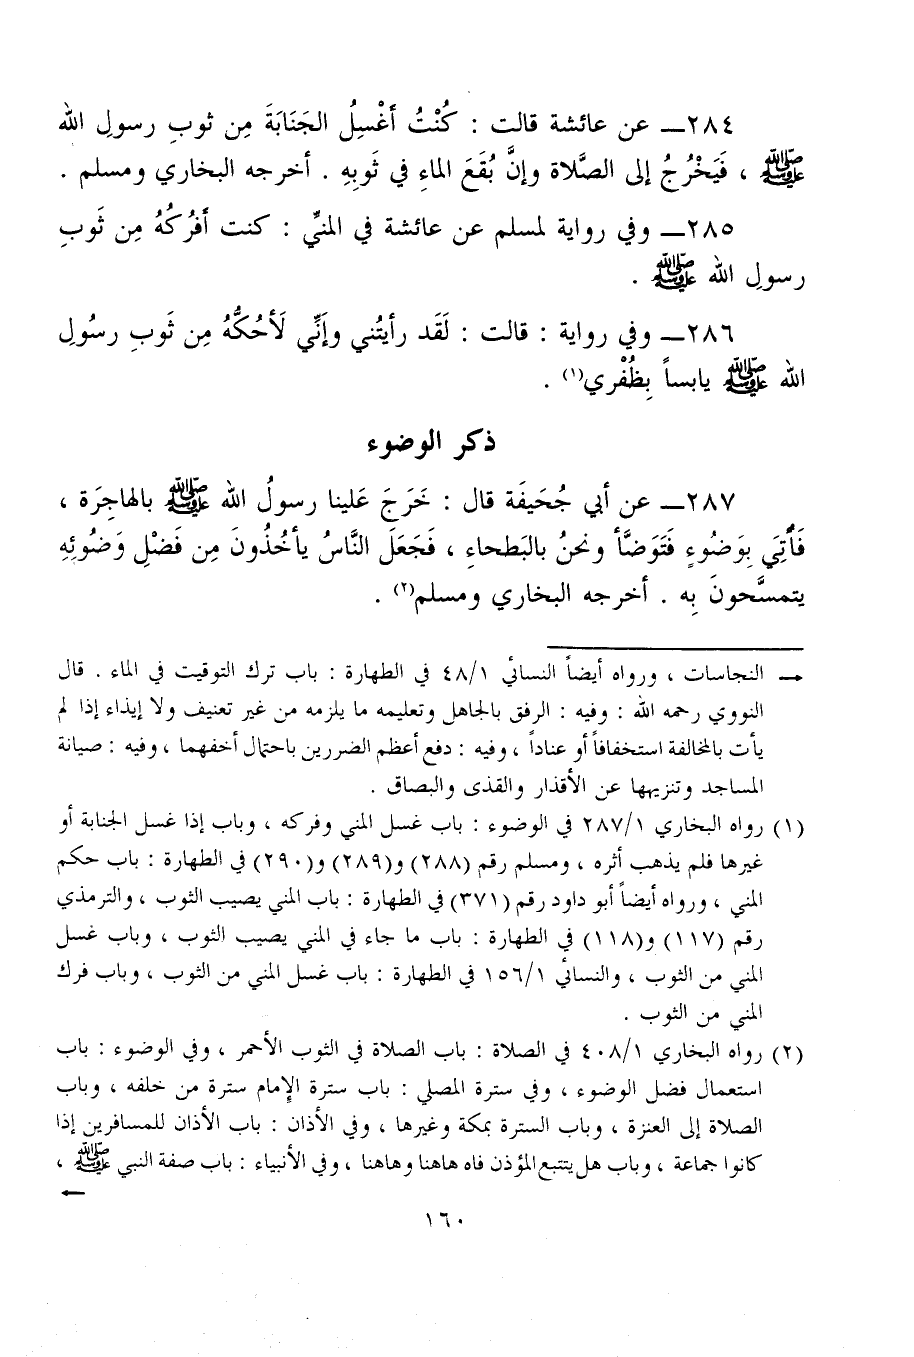 ٢٨٤ــ عن عائشة قالت : كُنْتُ أغْسِلُ الجَنَابَةَ مِن ثوبِ رسولِ الله
ﷺ ، فَيَخْرُجُ إلى الصَّلاة وإنَّ بُقَعَ الماءِ في ثَوبِهِ . أخرجه البخاري ومسلم .
٢٨٥ــ وفي رواية لمسلم عن عائشة في المنيِّ : كنت أَفرُكُهُ مِن ثَوبِ
رسولِ الله ﷺ .
٢٨٦ــ وفي رواية : قالت : لَقَد رأيتُني وإَنِّي لَأحُكُّهُ مِن ثَوبِ رسُولِ
الله ﷺ يابساً بِظُفْري(١) .
ذكر الوضوء
٢٨٧ــ عن أبي جُحَيفَة قال : خَرَجَ عَلينا رسولُ الله ﷺ بالهاجِرَة ،
فَأُتِيَ بِوَضُوءٍ فَتَوَضَّأَ ونحنُ بالبَطحاءِ ، فَجَعَلَ النَّاسُ يأخُذُونَ مِن فَضْلِ وَضُوئِهِ
يتمسَّحونَ بِه . أخرجه البخاري ومسلم(٢) .
→ النجاسات ، ورواه أيضاً النسائي ٤٨/١ في الطهارة : باب ترك التوقيت في الماء . قال
النووي رحمه الله : وفيه : الرفق بالجاهل وتعليمه ما يلزمه من غير تعنيف ولا إيذاء إذا لم
يأت بالمخالفة استخفافاً أو عناداً ، وفيه : دفع أعظم الضررين باحتمال أخفهما ، وفيه : صيانة
المساجد وتنزيهها عن الأقذار والقذى والبصاق .
(١) رواه البخاري ٢٨٧/١ في الوضوء : باب غسل المني وفركه ، وباب إذا غسل الجنابة أو
غيرها فلم يذهب أثره ، ومسلم رقم (٢٨٨) و(٢٨٩) و(٢٩٠) في الطهارة : باب حكم
المني ، ورواه أيضاً أبو داود رقم (٣٧١) في الطهارة : باب المني يصيب الثوب ، والترمذي
رقم (١١٧) و(١١٨) في الطهارة : باب ما جاء في المني يصيب الثوب ، وباب غسل
المني من الثوب ، والنسائي ١٥٦/١ في الطهارة : باب غسل المني من الثوب ، وباب فرك
المني من الثوب .
(٢) رواه البخاري ٤٠٨/١ في الصلاة : باب الصلاة في الثوب الأحمر ، وفي الوضوء : باب
استعمال فضل الوضوء ، وفي سترة المصلي : باب سترة الإمام سترة من خلفه ، وباب
الصلاة إلى العنزة ، وباب السترة بمكة وغيرها ، وفي الأذان : باب الأذان للمسافرين إذا
كانوا جماعة ، وباب هل يتتبع المؤذن فاه هاهنا وهاهنا ، وفي الأنبياء : باب صفة النبي ﷺ ،
←
١٦٠